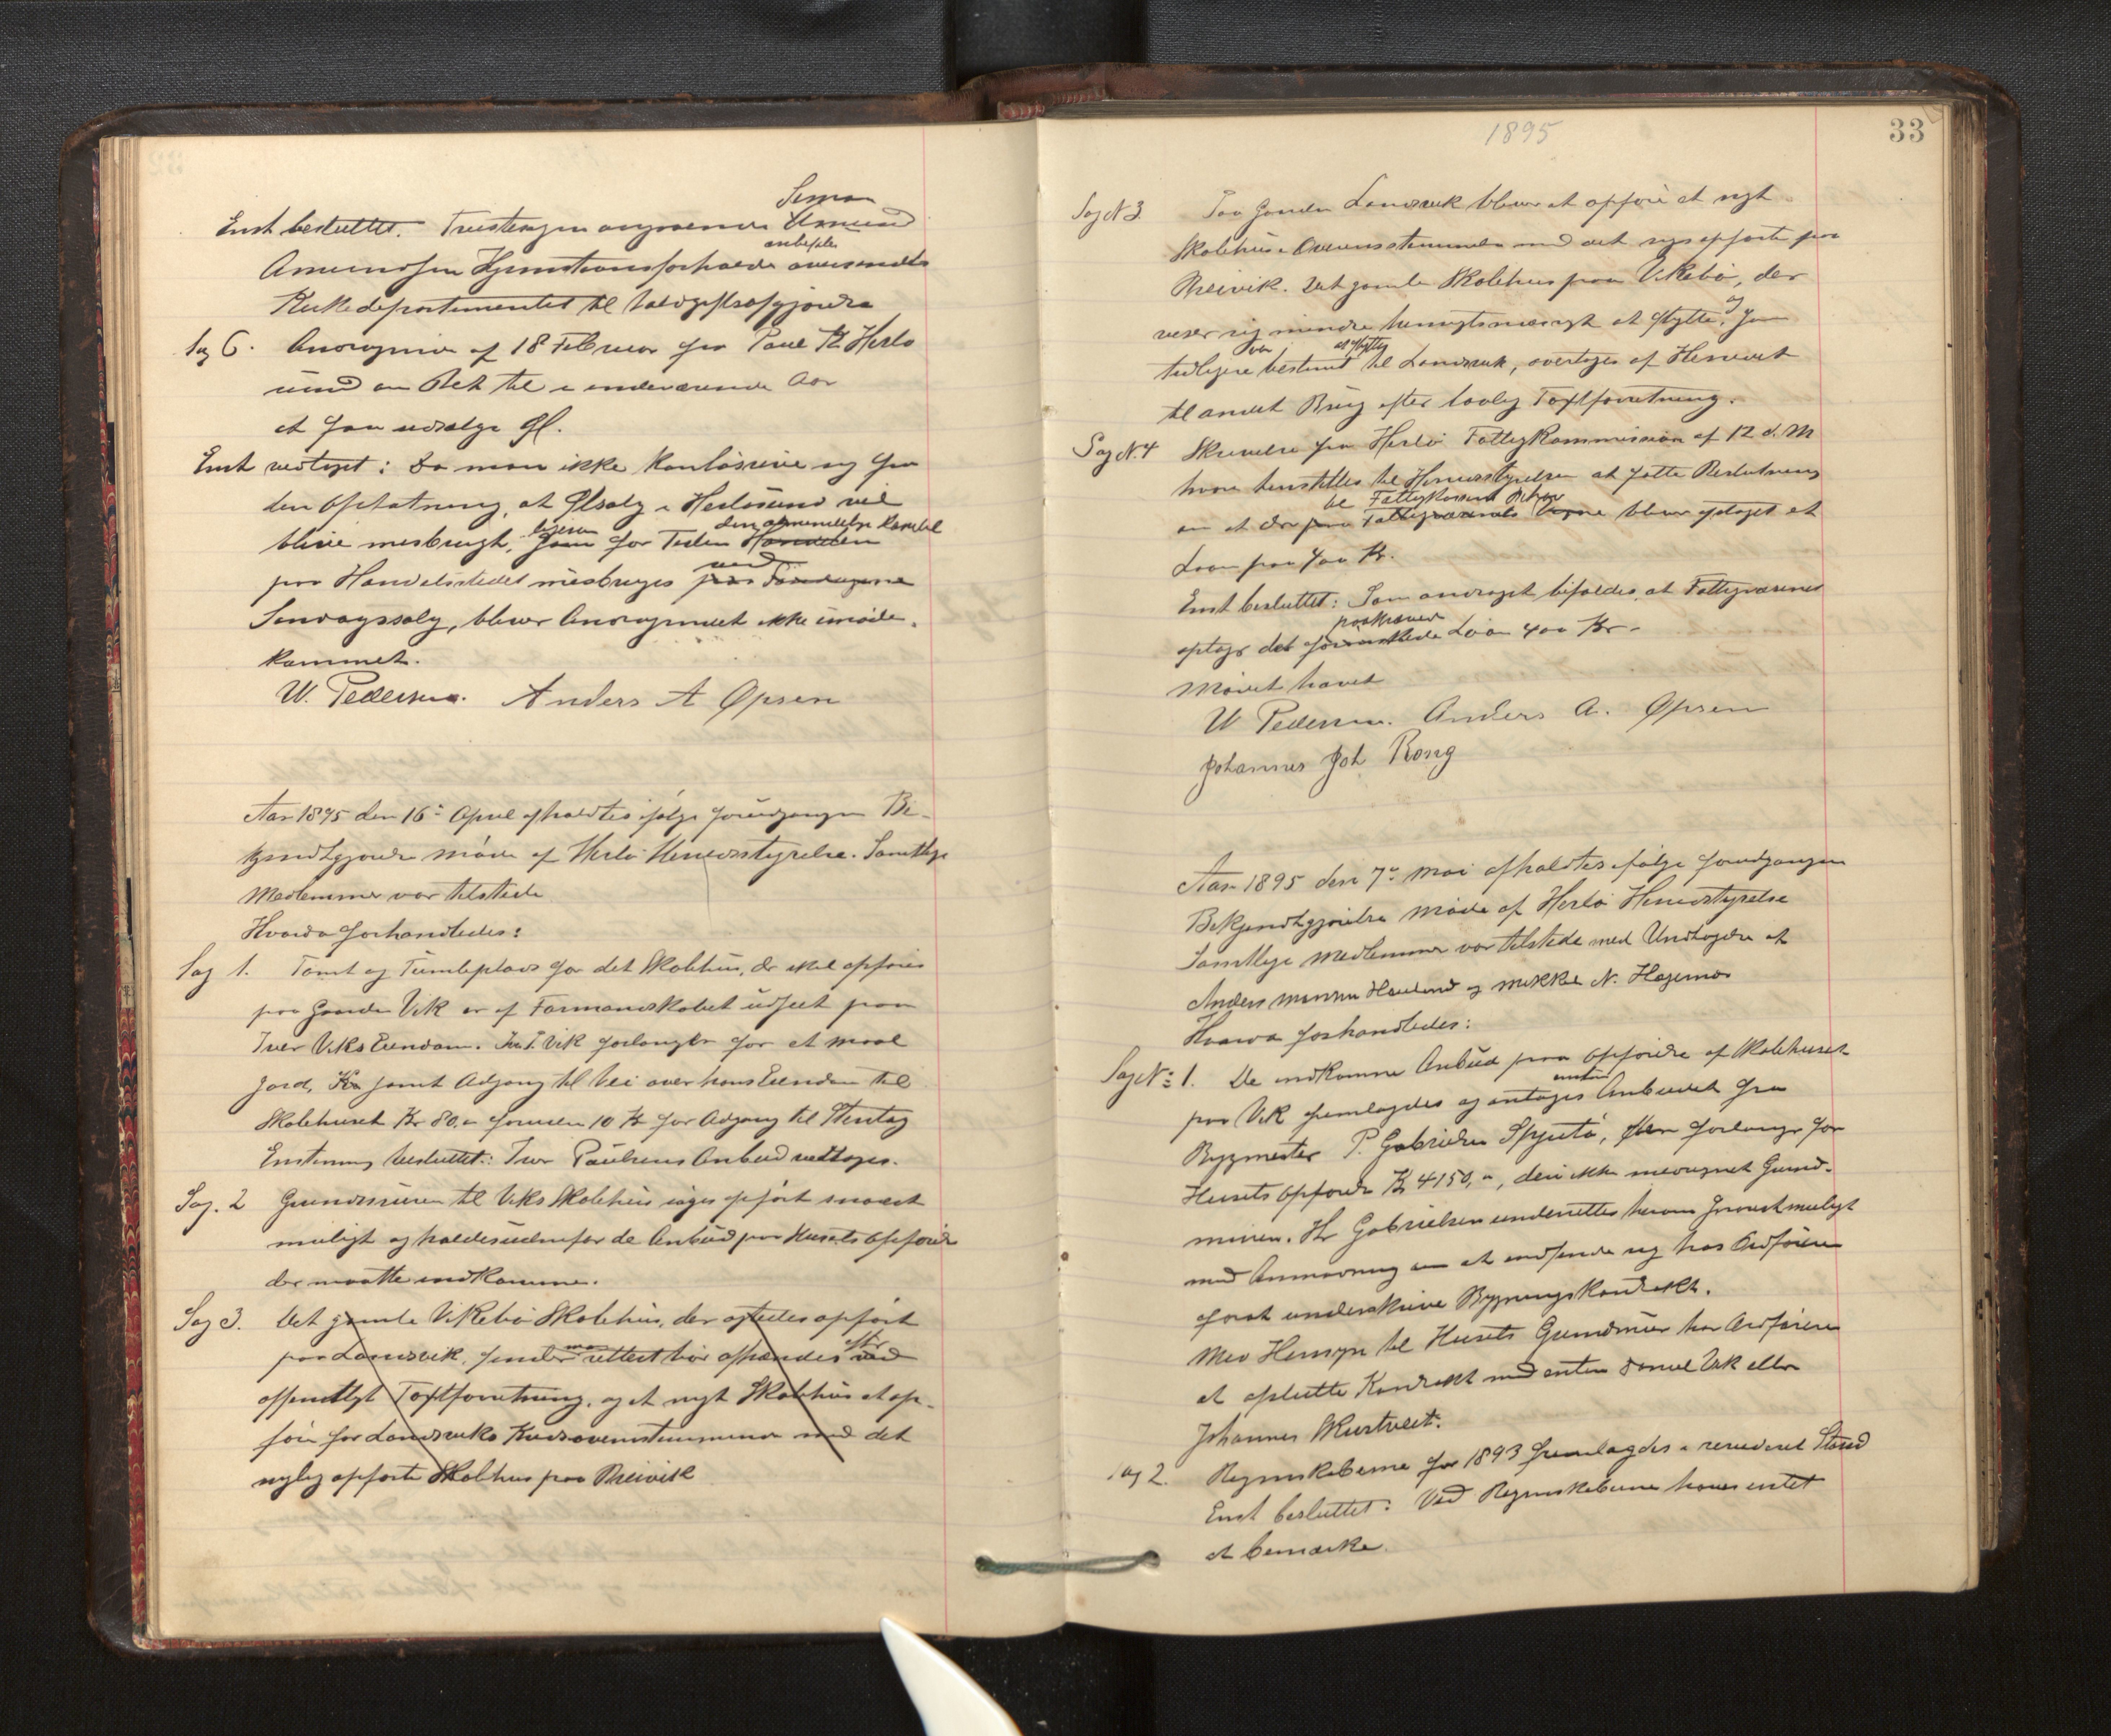 Simon
Enst besluttet. Tvistsagen angaaende Amund
anbefales
Amundsen Hjemstavnsforholde oversendtes
Kirkedepartementet til Udslagsafgjørelse
Sag 6. Andragende af 18 Februar fra Paul K Herlø
sund om Ret til i indeværende Aar
at faa udsælge Øl.
Enst vedtaget: Da man ikke kan løsrive sig fra
den Opfatning, at Ølsalg i Herløsund vil
ligesom den almindelige Handel
blive misbrugt, som for Tiden Handelen
ved
paa Handelsstedet misbruges paa Søndagene
Søndagssalg, bliver Andragendet ikke imøde-
kommet.
W. Pedersen. Anders A Øpsen
Aar 1895 den 16de April afholdtes ifølge forudgangen Be-
kjendtgjørelse møde af Herlø Herredsstyrelse. Samtlige
Medlemmer var tilstede
Hvorda forhandledes:
Sag 1. Tomt og Tumleplads for det Skolehus, der skal opføres
paa Gaarden Vik er af Formandskabet udseet paa
Iver Viks Eiendom. Iv. P. Vik forlanger for et maal
jord, Kr samt Adgang til Vei over hans Eiendom til
Skolehuset Kr 80,- foruden 10 Kr for Adgang til Stentag
Enstemmig besluttet: Iver Paulsens Anbud vedtages.
Sag. 2 Grundmuren til Viks Skolehus søges opført snarest
muligt og holdes udenfor de Anbud paa Husets Opførelse
der maatte indkomme.
Sag 3. Det gamle Vikebø Skolehus, der agtedes opført
paa Landsvik, finder man rettest bør afhændes ved efter
offentligt Taxtforretning, og et nyt Skolehus at op-
føre for Landsviks Kreds overensstemmende med det
nylig opførte Skolehus paa Breivik
1895
33
Sag N 3. Paa Gaarden Landsvik bliver at opføre et nyt
Skolehus i Overensstemmelse med det nys opførte paa
Breivik. Det gamle Skolehus paa Vikebø, der
viser sig mindre hensigtsmæssigt at flytte, og som
var at flytte
tidligere bestemt til Landsvik, overtages af Herredet
til andet Brug efter lovlig Taxtforretning.
Sag N. 4 Skrivelse fra Herlø Fattigkommission af 12 d. M
hvori henstilles til Herredsstyrelsen at fatte Beslutning
til Fattigkassens Behov
om at der paa Fattigvæsenets Vegne bliver optaget et
Laan paa 400 Kr.
Enst besluttet: Som andraget bifaldes, at Fattigvæsenet
paakrævede
optager det forønskede Laan 400 Kr.
Mødet hævet
W Pedersen. Anders A. Øpsen
Johannes Joh Rong
Aar 1895 den 7de Mai afholdtes ifølge forudgangen
Bekjendtgjørelse møde af Herlø Herredsstyrelse
Samtlige Medlemmer var tilstede med Undtagelse af
Anders Monsen Hauland og Mikkel N. Hagenæs
Hvorda forhandledes:
Sag No 1. De indkomne Anbud paa Opførelse af Skolehuset
paa Vik fremlagdes og antages Anbudet fra
Bygmester P. Gabrielsen Spjutø, der forlanger for
Husets Opførelse Kr 4150,-, deri ikke medregnet Grund-
muren. Hr Gabrielsen underrettes herom snarest muligt
med Anmodning om at indfinde sig hos Ordføreren
forat underskrive Bygningskontrakt.
Med Hensyn til Husets Grundmur har Ordføreren
at afslutte Kontrakt med enten Daniel Vik eller
Johannes Skurtveit.
Sag 2. Regnskaberne for 1893 fremlagdes i revideret Stand
Enst besluttet: Ved Regnskaberne haves intet
at bemærke.